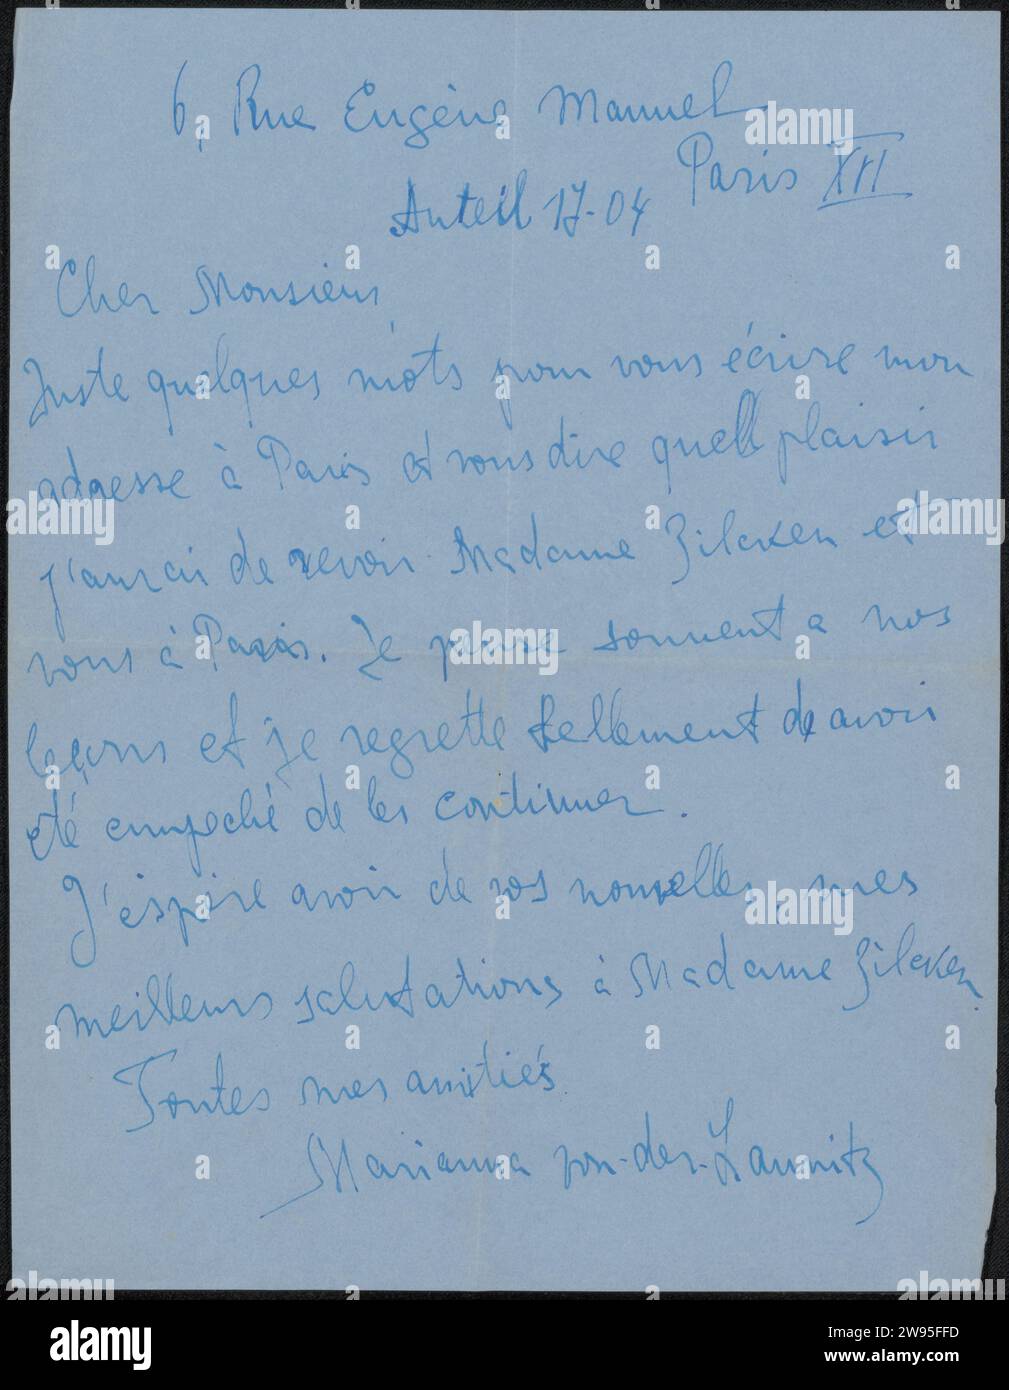 6, Rue Eugène Manuel
Paris XVI
Auteil 17-04
Cher Monsieur
Juste quelques mots pour vous écrire mon
adresse à Paris et vous dire quell plaisir
j'aurai de revoir Madame Zilcken et
vous à Paris. Je pense souvent a nos
leçons et je regrette tellement de avoir
été empeché de les continuer.
J'espère avoir de vos nouvelles, mes
meilleurs salutations à Madame Zilcken.
Toutes mes amitiés
Marianna von-der-Launitz
alamy
Image ID: 2W95FFD
www.alamy.com